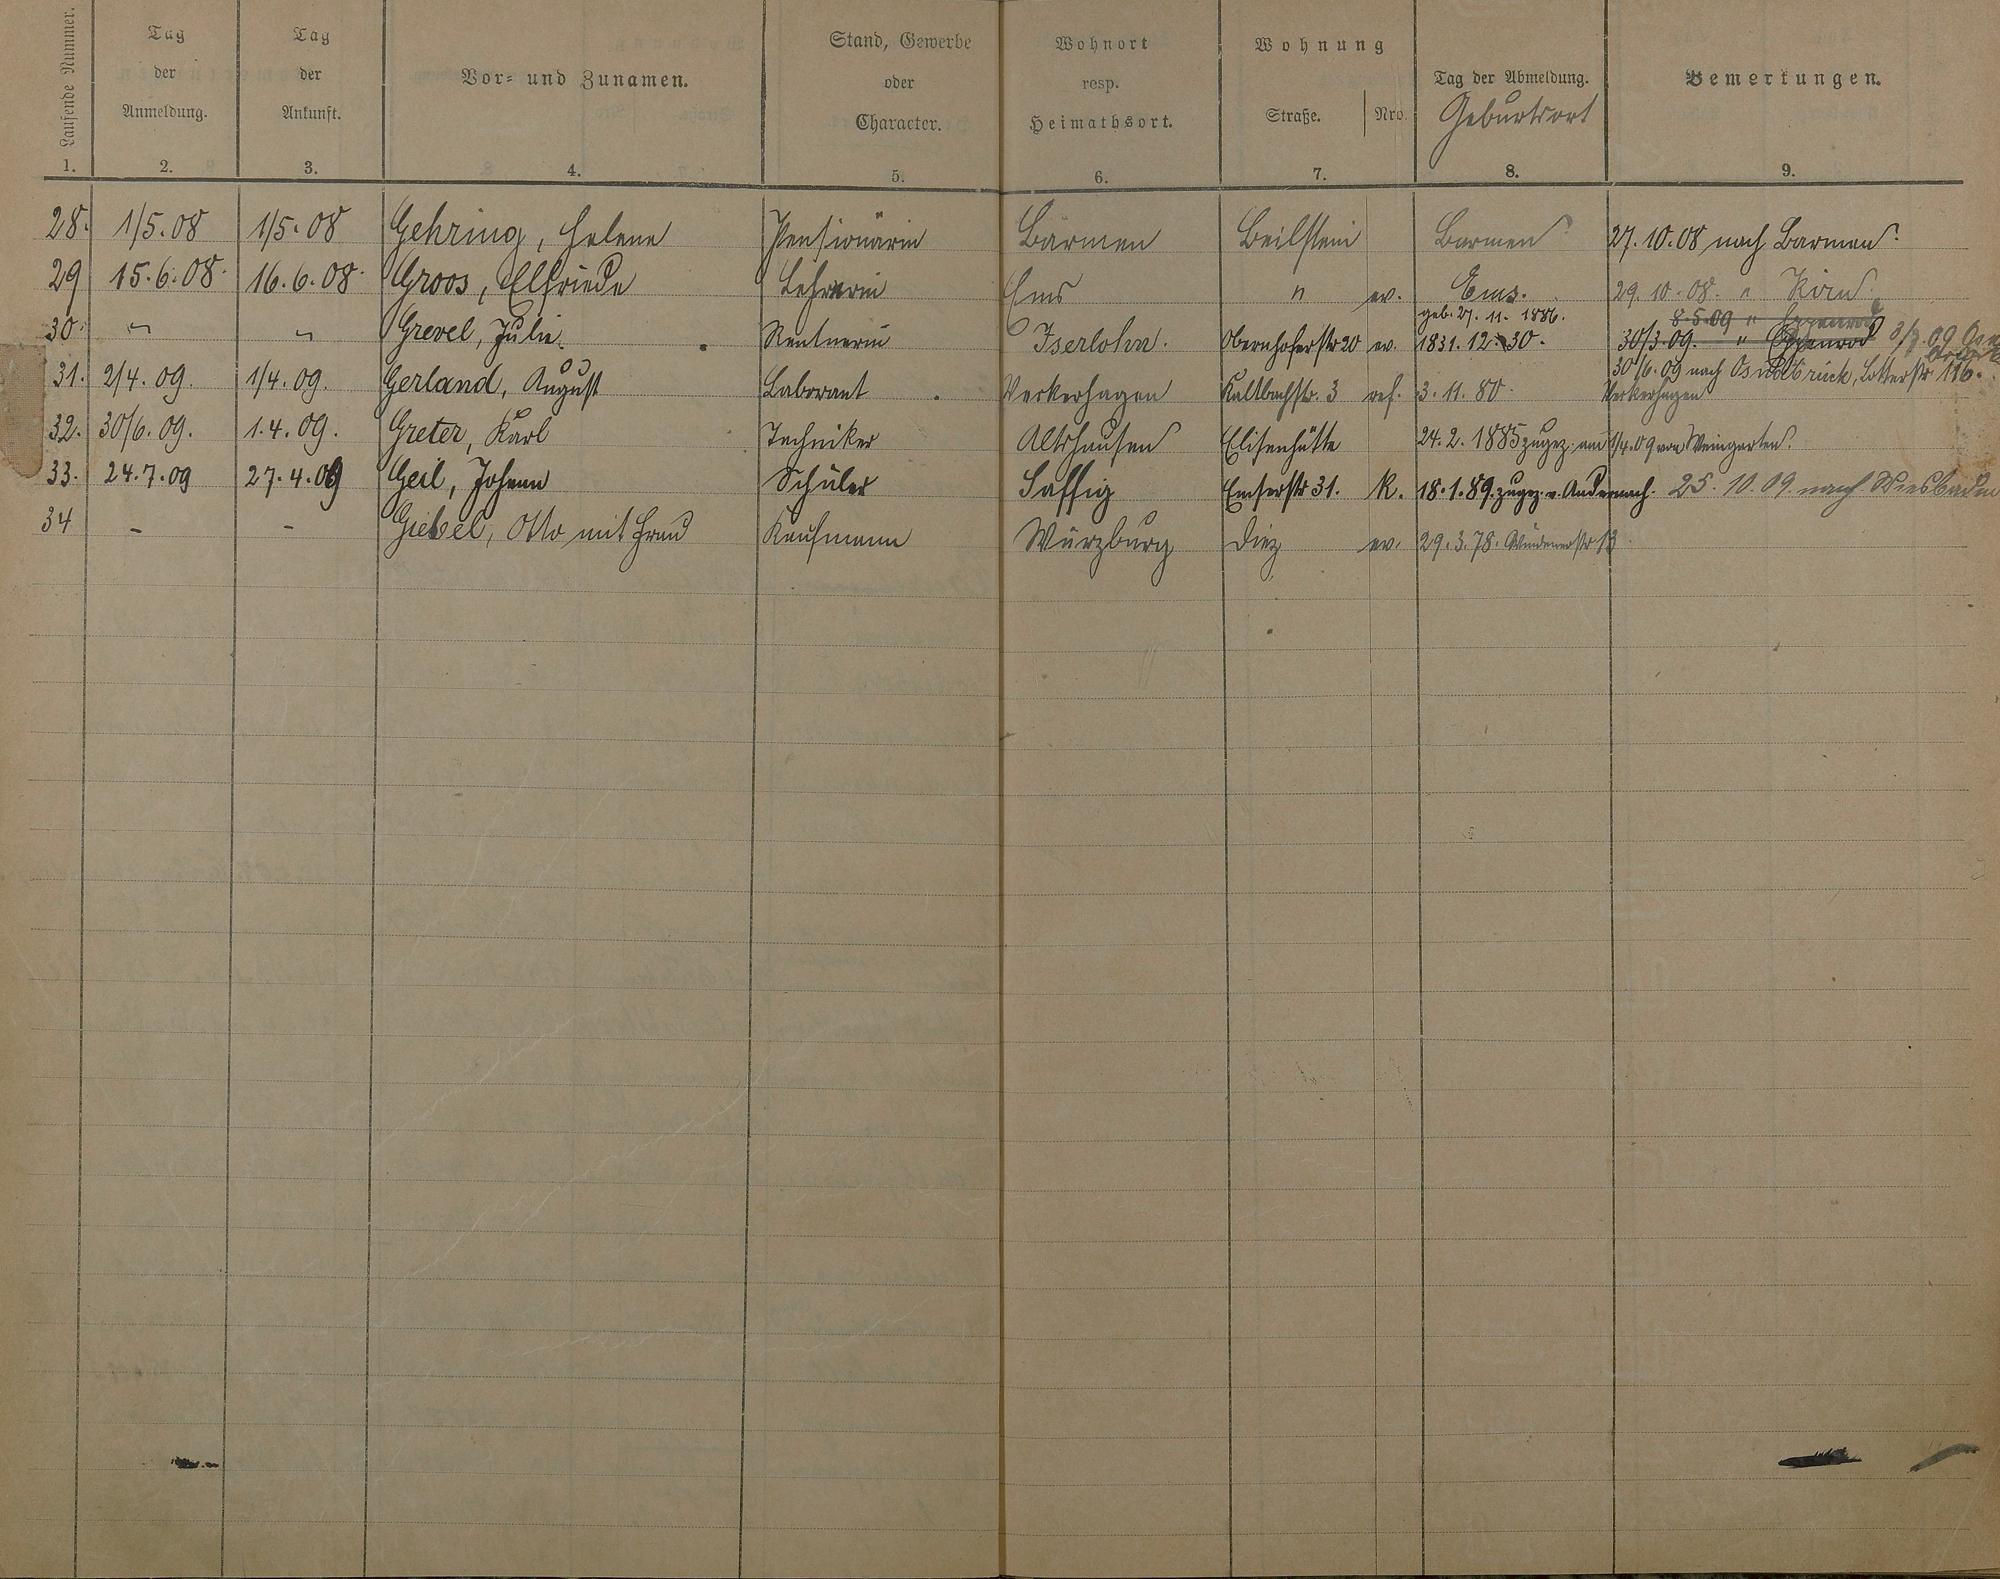 Laufende Nummer. Tag der Anmeldung. Tag der Ankunft. Vor- und Zunamen. Stand, Gewerbe oder Character. Wohnort resp. Heimathsort. Wohnung Straße. Nro. Tag der Abmeldung. Geburtsort Bemerkungen.
1. 2. 3. 4. 5. 6. 7. 8. 9.
28. 1/5.08 1/5.08 Gehring, Helene Pensionärin Barmen Beilstein Barmen 27.10.08 nach Barmen.
29 15.6.08. 16.6.08. Groos, Elfriede Lehrerin Ems " ev. Ems. 29.10.08. " Kirn
geb. 27.11.1886. 8.5.09 "
30. " " Grevel, Julie. Rentnerin Iserlohn. Obernhoferstr 20 ev. 1831.12.30. 30/3.09. " Eppenrod
30/6.09 nach Osnabrück, Lotterstr 116.
31. 2/4.09. 1/4.09. Gerland, August Laborant Veckerhagen Kaltbachstr. 3 ref. 3.11.80. Veckerhagen
32. 30/6.09. 1.4.09. Greter, Karl Techniker Altshausen Elisenhütte 24.2.1885 zugez. am 1/4.09 von Weingarten.
33. 24.7.09 27.4.09 Geil, Johann Schüler Saffig Emserstr 31. K. 18.1.89. zugez. v. Andernach. 25.10.09. nach Wiesbaden
34 - - Giebel, Otto mit Frau Kaufmann Würzburg Diez ev. 29.3.78. 13